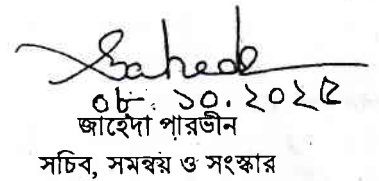 Sahede
০৮.১০.২০২৫
জাহেদা পারভীন
সচিব, সমন্বয় ও সংস্কার